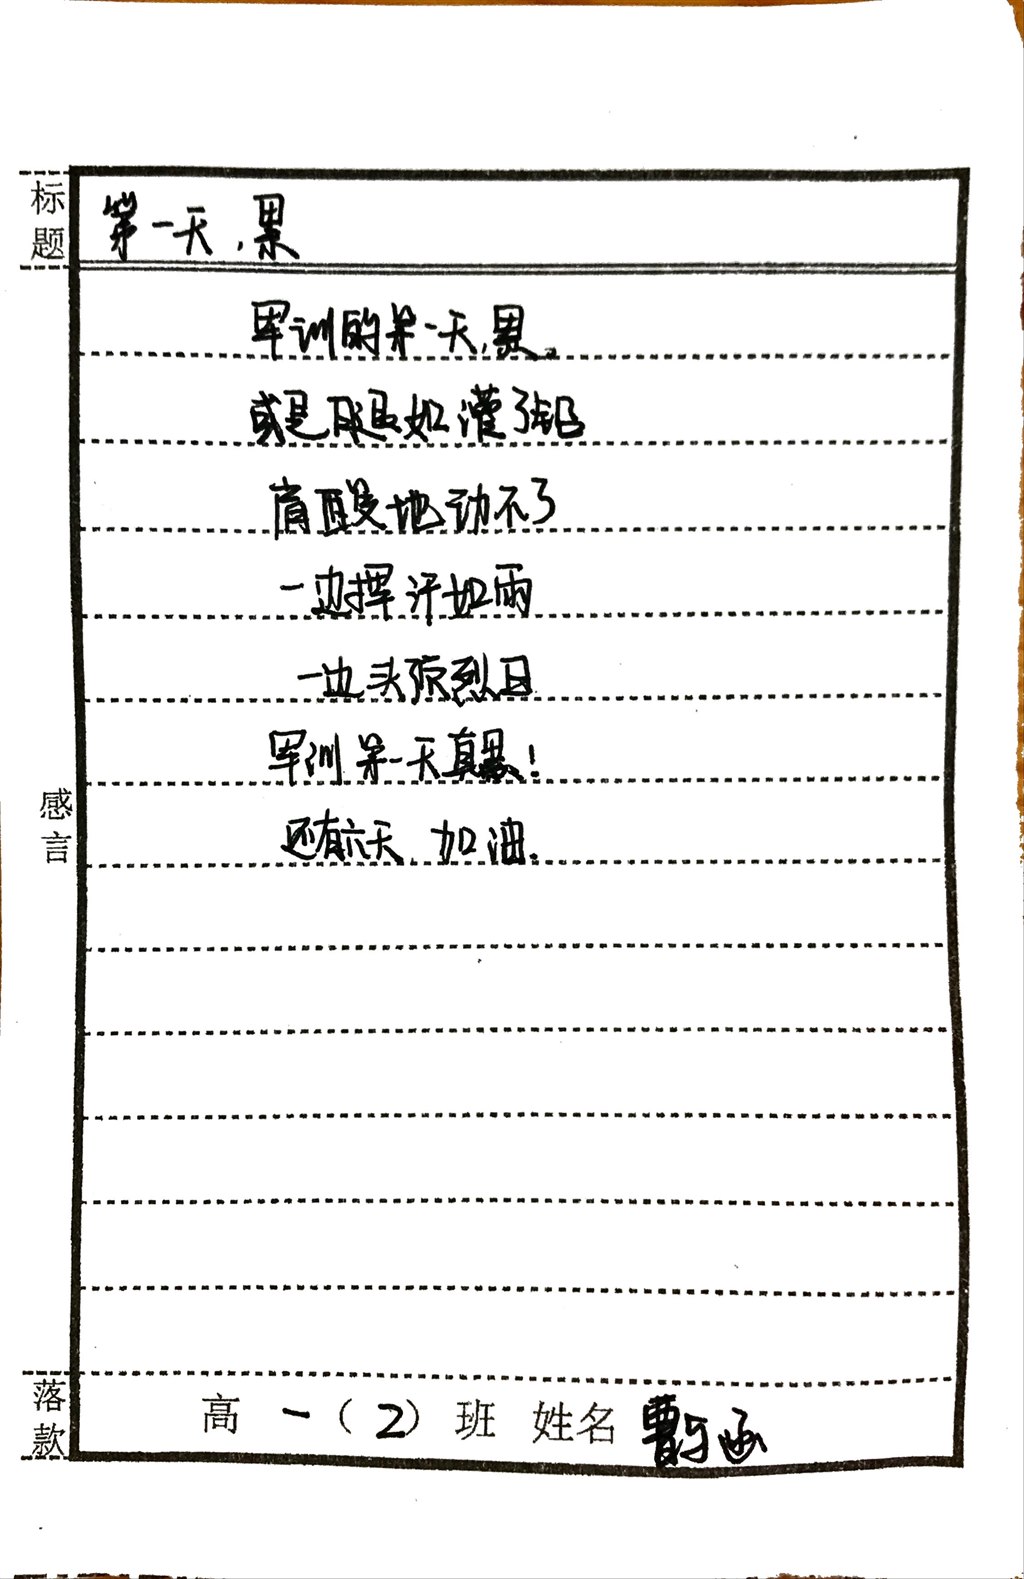 标题
第一天，累
军训的第一天，累。
或是腿如灌了铅
肩酸地动不了
一边挥汗如雨
一边头顶烈日
军训第一天真累！
还有六天，加油.
感言
落款
高一（2）班 姓名 曹 涵